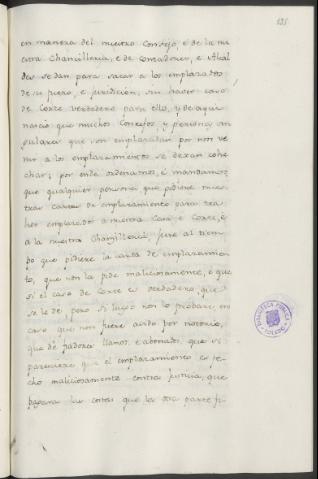 185
en manera del nuestro Consejo, é de la nu
estra Chancilleria, é de Contadores, é Alcal
des se dan para sacar a los emplazados
de su fuero, é juridicion, sin haver caso
de Corte verdadero para ello, y de aqui
nacio que muchos Concejos, y personas sin
gulares que son emplazadas por non ve
nir a los emplazamientos se dexan cohe
char; por ende ordenamos, é mandamos,
que qualquier persona que pidiere nues
tras cartas de emplazamiento para tra
her emplazados a nuestra Casa é Corte, é
á la nuestra Chancilleria, jure al tiem
po que pidiere la carta de emplazamien
to, que non la pide maliciosamente, é que
si el caso de Corte es verdadero, que
se le dé pero si luego non lo probare, en
caso que non fuere avido por notorio,
que dé fiadores llanos, é abonados, que si
pareciere que el emplazamiento es fe
cho maliciosamente contra Justicia, que
pagara las costas que la otra parte fi
BIBLIOTECA PUBLICA
TOLEDO